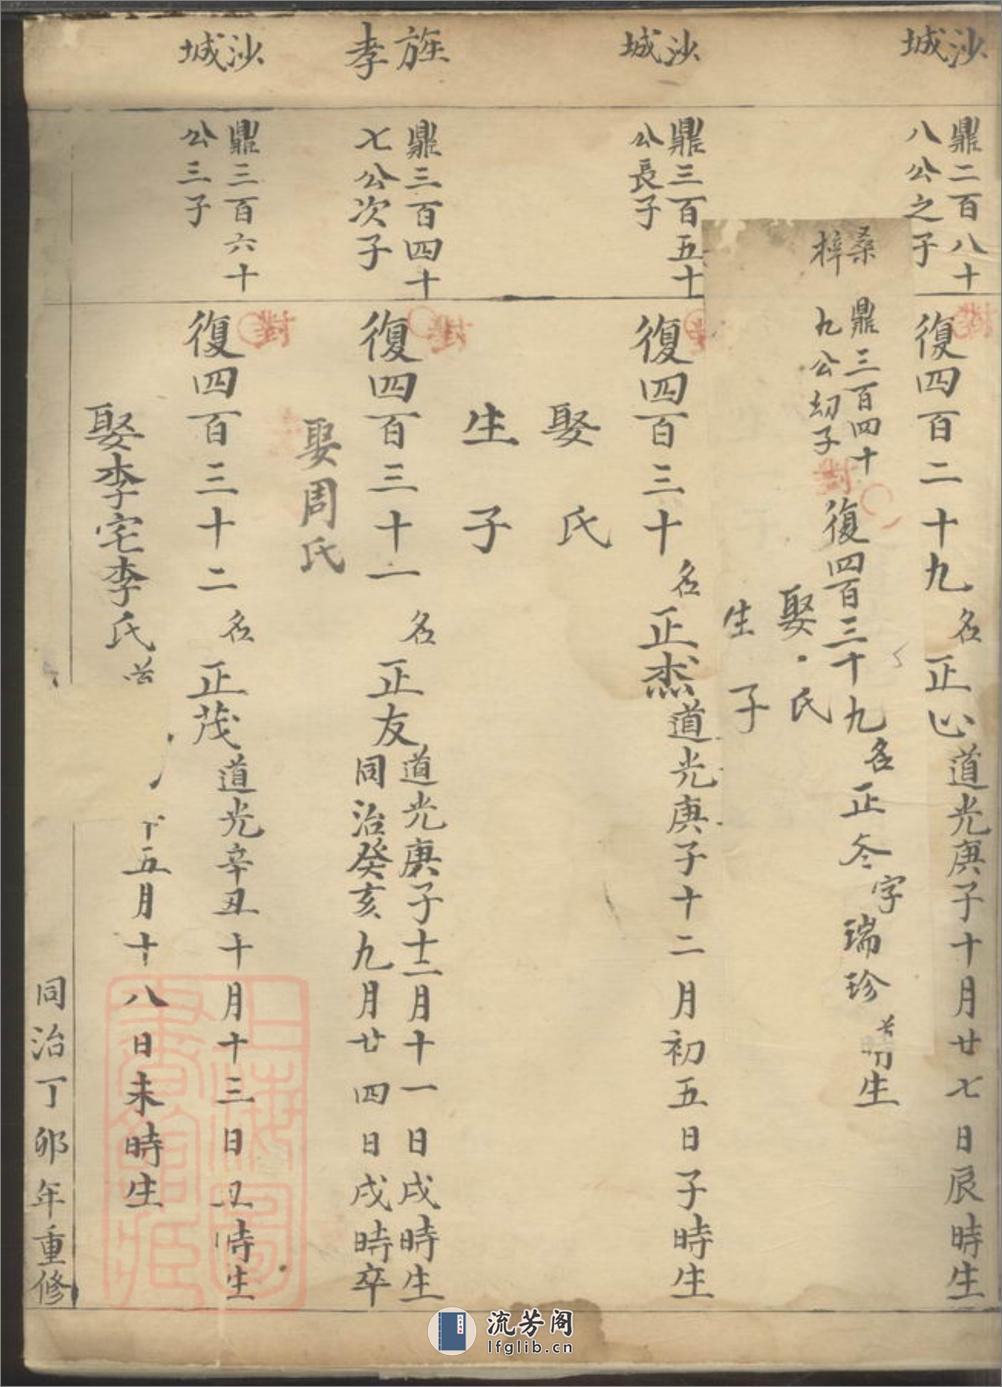 沙城
鼎二百八十
八公之子
復四百二十九名正心道光庚子十月廿七日辰時生
桑梓
鼎三百四十
九公幼子
復四百三十九名正冬字瑞珍
時生
娶氏
生子
沙城
鼎三百五十
公長子
復四百三十名正杰道光庚子十二月初五日子時生
娶氏
生子
旌孝
鼎三百四十
七公次子
復四百三十一名正友
道光庚子十二月十一日戌時生
同治癸亥九月廿四日戌時卒
娶周氏
沙城
鼎三百六十
公三子
復四百三十二名正茂道光辛丑十月十三日丑時生
娶李宅李氏
五月十八日未時生
同治丁卯年重修
對
對
對
對
對
上海圖書館藏
流芳阁
lfglib.cn